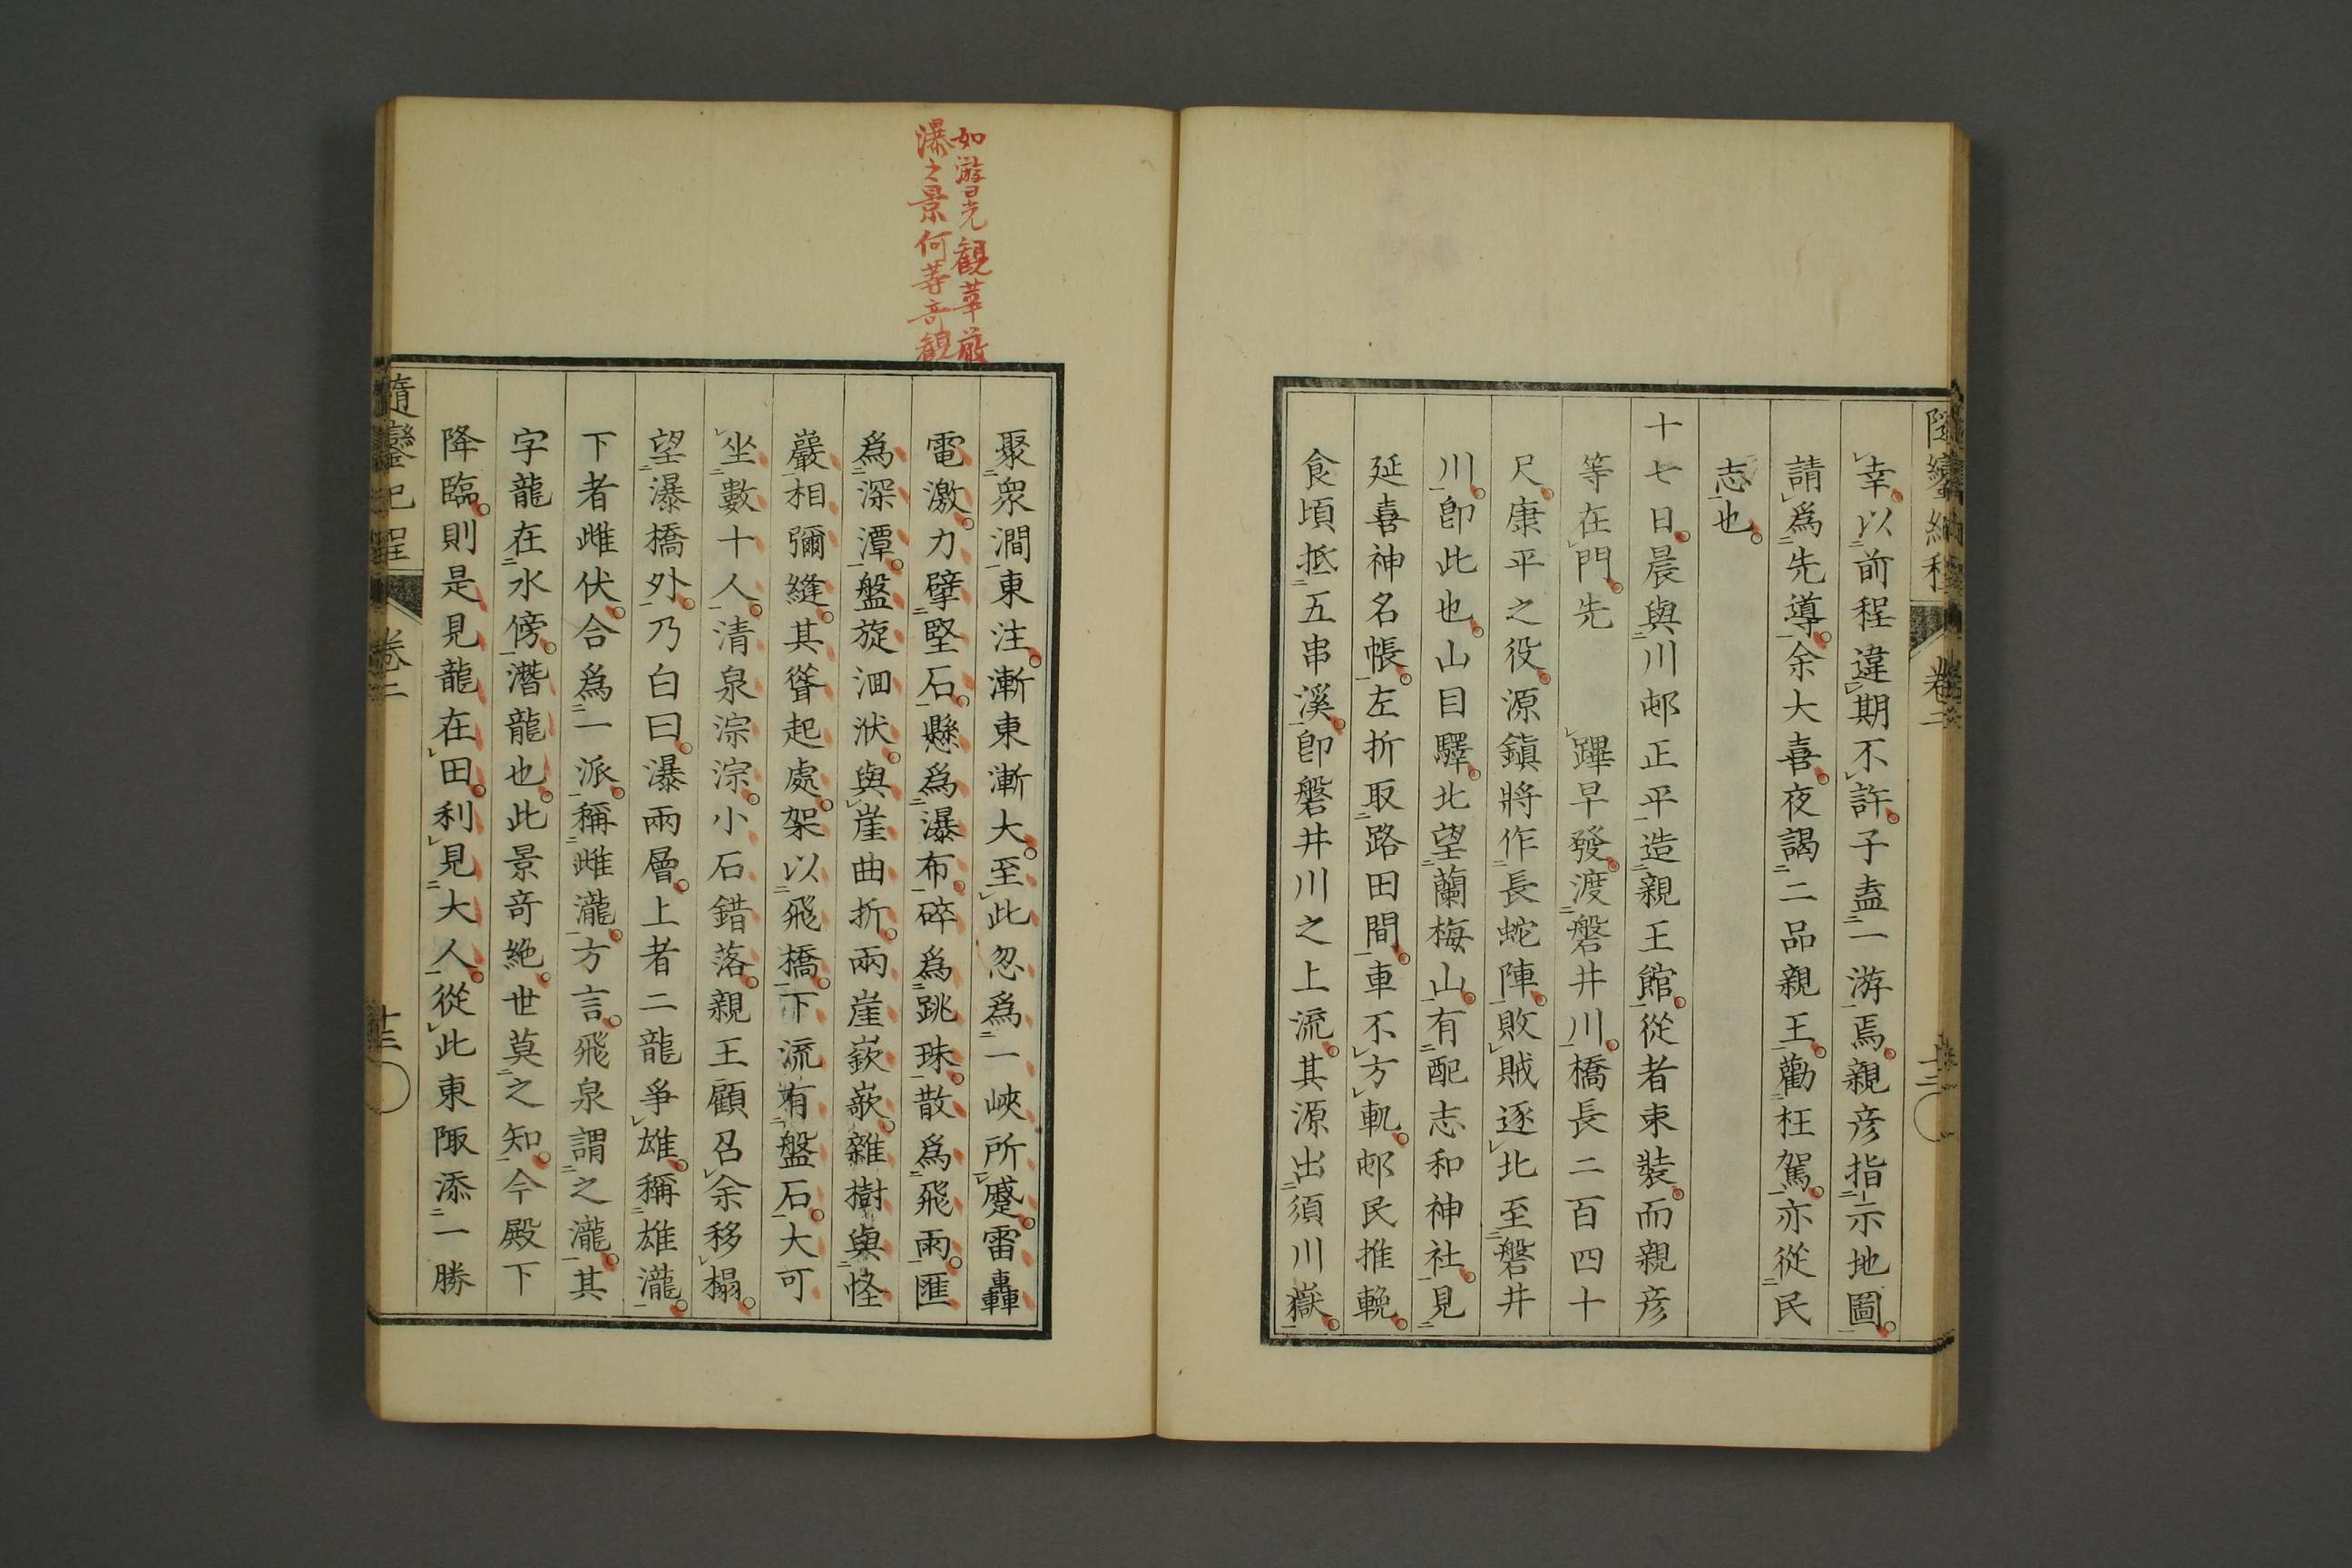 隨鑾紀程 卷二 十二
幸。以前程違期不許。子盍一游焉。親彦指示地圖。
請爲先導。余大喜。夜謁二品親王。勸枉駕。亦從民
志也。
十七日。晨與川邨正平造親王館。從者束裝。而親彦
等在門。先 蹕早發。渡磐井川。橋長二百四十
尺。康平之役。源鎮將作長蛇陣。敗賊逐北至磐井
川。卽此也。山目驛。北望蘭梅山。有配志和神社。見
延喜神名帳。左折取路田間。車不方軌。邨民推輓。
食頃抵五串溪。卽磐井川之上流。其源出須川嶽。
如游日光觀華嚴
瀑之景何等奇觀
聚衆澗東注。漸東漸大。至此忽爲一峽所蹙。雷轟
電激。力擘堅石。懸爲瀑布。碎爲跳珠。散爲飛雨。匯
爲深潭。盤旋洄洑。與崖曲折。兩崖嶔嶔。雜樹與怪
巖相彌縫。其聳起處。架以飛橋。下流有盤石。大可
坐數十人。清泉淙淙。小石錯落。親王顧召余移榻。
望瀑橋外。乃白曰。瀑兩層。上者二龍爭雄。稱雄瀧。
下者雌伏。合爲一派。稱雌瀧。方言。飛泉謂之瀧。其
字龍在水傍。潛龍也。此景奇絶。世莫之知。今殿下
降臨。則是見龍在田。利見大人。從此東陬添一勝
隨鑾紀程 卷二 十三